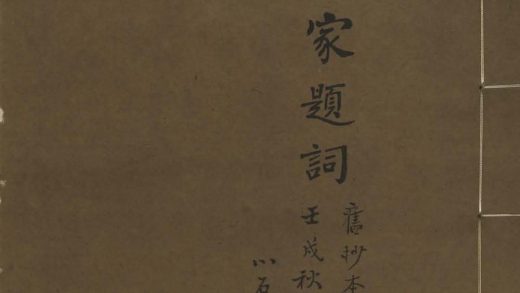 家題詞
舊抄本
壬戌秋
小